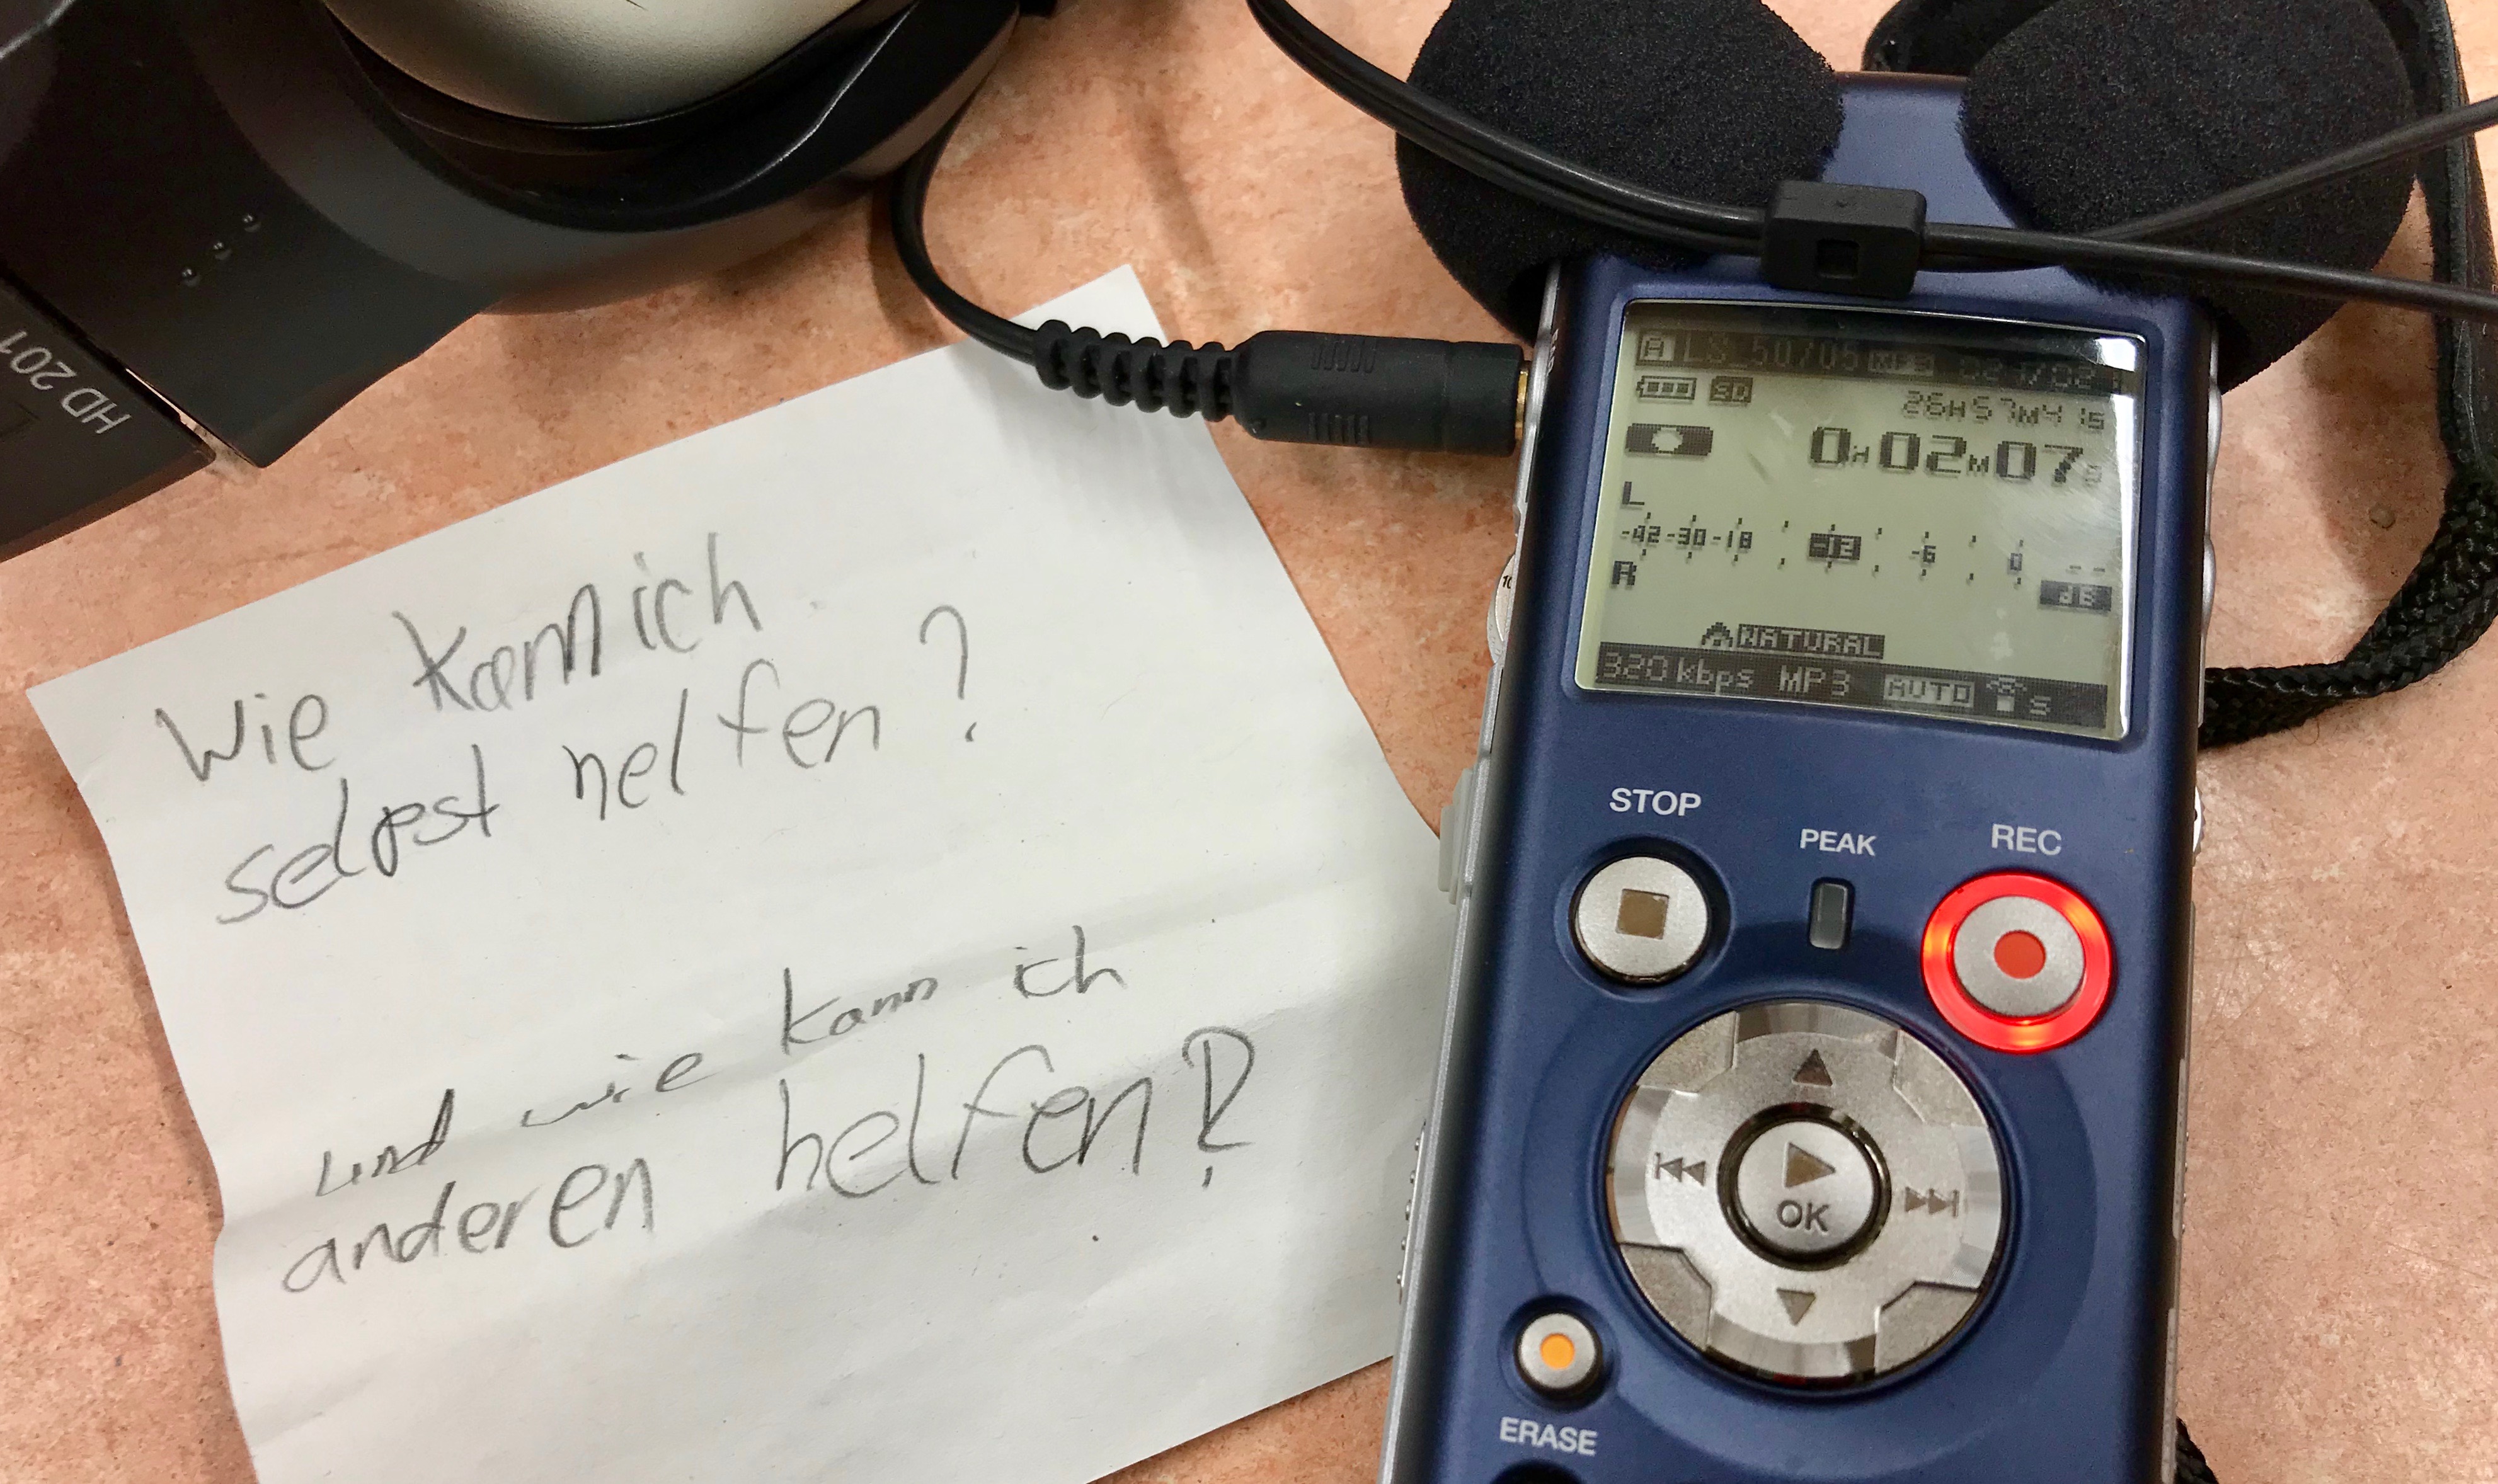 HD 201
Wie kann ich
selpst helfen?
und wie kann ich
anderen helfen?
A LS_50705 MP3
SD
26H57M41S
0H02M07S
L
-42-30-18 -12 -6 0 --
R
dB
NATURAL
320 kbps MP3 AUTO S
STOP
PEAK
REC
OK
ERASE